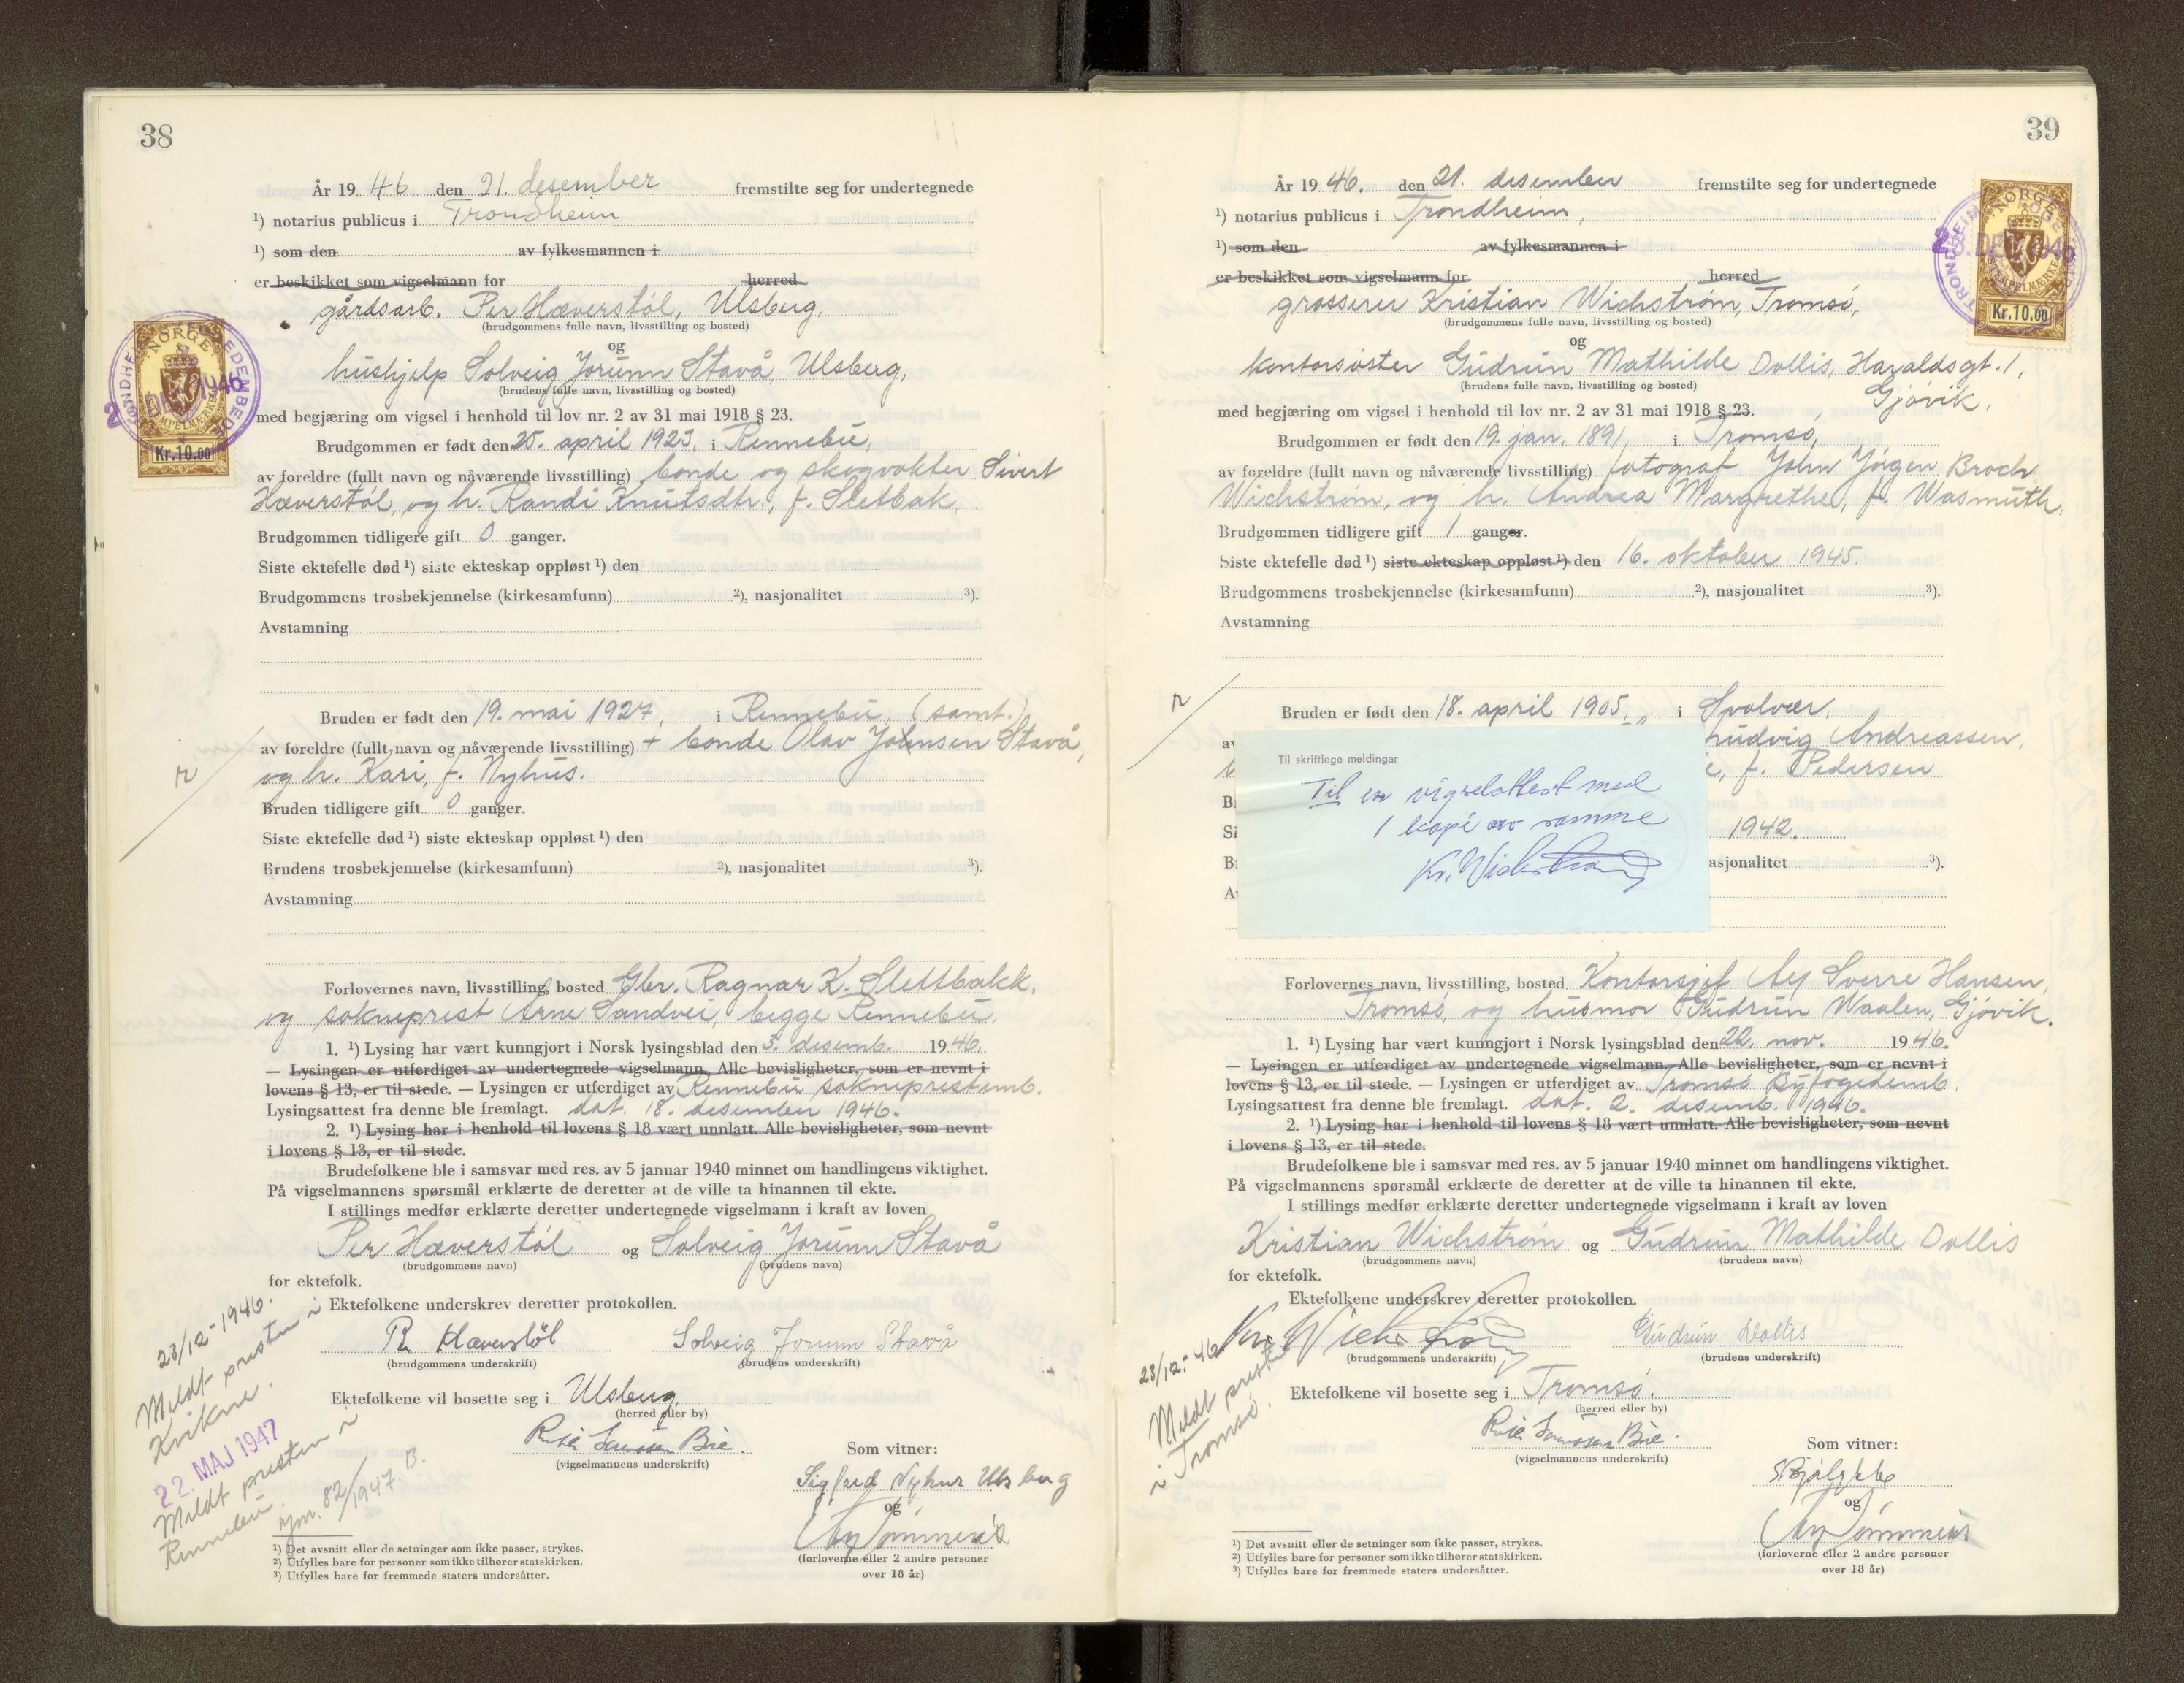 38
År 19 46 den 21. desember fremstilte seg for undertegnede
¹) notarius publicus i Trondheim
¹) som den av fylkesmannen i
er beskikket som vigselmann for herred
gårdsarb. Per Hæverstøl, Ulsberg,
(brudgommens fulle navn, livsstilling og bosted)
og
hushjelp Solveig Jorunn Stavå, Ulsberg,
(brudens fulle navn, livsstilling og bosted)
med begjæring om vigsel i henhold til lov nr. 2 av 31 mai 1918 § 23.
Brudgommen er født den 25. april 1923, i Rennebu,
av foreldre (fullt navn og nåværende livsstilling) bonde og skogvokter Sivert
Hæverstøl, og h. Randi Knutsdtr., f. Sletbak.
Brudgommen tidligere gift 0 ganger.
Siste ektefelle død ¹) siste ekteskap oppløst ¹) den
Brudgommens trosbekjennelse (kirkesamfunn) ²), nasjonalitet ³).
Avstamning
Bruden er født den 19. mai 1927, i Rennebu, (samt.)
av foreldre (fullt navn og nåværende livsstilling) + bonde Olav Johnsen Stavå,
og h. Kari, f. Nyhus.
Bruden tidligere gift 0 ganger.
Siste ektefelle død ¹) siste ekteskap oppløst ¹) den
Brudens trosbekjennelse (kirkesamfunn) ²), nasjonalitet ³).
Avstamning
Forlovernes navn, livsstilling, bosted Gbr. Ragnar K. Slettbakk,
og sokneprest Arne Sandvei, begge Rennebu.
1. ¹) Lysing har vært kunngjort i Norsk lysingsblad den 3. desemb. 19 46.
— Lysingen er utferdiget av undertegnede vigselmann. Alle bevisligheter, som er nevnt i
lovens § 13, er til stede. — Lysingen er utferdiget av Rennebu sokneprestemb.
Lysingsattest fra denne ble fremlagt. dat. 18. desember 1946.
2. ¹) Lysing har i henhold til lovens § 18 vært unnlatt. Alle bevisligheter, som nevnt
i lovens § 13, er til stede.
Brudefolkene ble i samsvar med res. av 5 januar 1940 minnet om handlingens viktighet.
På vigselmannens spørsmål erklærte de deretter at de ville ta hinannen til ekte.
I stillings medfør erklærte deretter undertegnede vigselmann i kraft av loven
Per Hæverstøl og Solveig Jorunn Stavå
(brudgommens navn) (brudens navn)
for ektefolk.
Ektefolkene underskrev deretter protokollen.
Per Hæverstøl Solveig Jorunn Stavå
(brudgommens underskrift) (brudens underskrift)
Ektefolkene vil bosette seg i Ulsberg.
(herred eller by)
(vigselmannens underskrift)
Som vitner:
Sigfred Nyhus Ulsberg
og
(forloverne eller 2 andre personer
over 18 år)
23/12-1946.
Meldt presten i
Kvikne.
22. MAJ 1947
Meldt presten i
Rennebu.
jnr. 82/1947. B.
¹) Det avsnitt eller de setninger som ikke passer, strykes.
²) Utfylles bare for personer som ikke tilhører statskirken.
³) Utfylles bare for fremmede staters undersåtter.
NORGE
STEMPELMÆRKE
Kr. 10.00
39
År 19 46. den 21. desember fremstilte seg for undertegnede
¹) notarius publicus i Trondheim,
¹) som den av fylkesmannen i
er beskikket som vigselmann for herred
grosserer Kristian Wichstrøm, Tromsø,
(brudgommens fulle navn, livsstilling og bosted)
og
kontorsøster Gudrun Mathilde Dollis, Haraldsgt. 1,
(brudens fulle navn, livsstilling og bosted)
Gjøvik,
med begjæring om vigsel i henhold til lov nr. 2 av 31 mai 1918 § 23.
Brudgommen er født den 19. jan. 1891, i Tromsø,
av foreldre (fullt navn og nåværende livsstilling) fotograf John Jørgen Broch
Wichstrøm, og h. Andrea Margrethe, f. Wasmuth.
Brudgommen tidligere gift 1 ganger.
Siste ektefelle død ¹) siste ekteskap oppløst ¹) den 16. oktober 1945.
Brudgommens trosbekjennelse (kirkesamfunn) ²), nasjonalitet ³).
Avstamning
Bruden er født den 18. april 1905, i Svolvær.
Ludvig Andreassen,
f. Pedersen
1942.
asjonalitet ³).
Til skriftlege meldingar
Til en vigselattest med
1 kopi av samme
Kr. Wichstrøm
Forlovernes navn, livsstilling, bosted Kontorsjef Sverre Hansen,
Tromsø, og husmor Gudrun Waalen, Gjøvik.
1. ¹) Lysing har vært kunngjort i Norsk lysingsblad den 22. nov. 19 46.
— Lysingen er utferdiget av undertegnede vigselmann. Alle bevisligheter, som er nevnt i
lovens § 13, er til stede. — Lysingen er utferdiget av Tromsø Byfogedemb.
Lysingsattest fra denne ble fremlagt. dat. 2. desemb. 1946.
2. ¹) Lysing har i henhold til lovens § 18 vært unnlatt. Alle bevisligheter, som nevnt
i lovens § 13, er til stede.
Brudefolkene ble i samsvar med res. av 5 januar 1940 minnet om handlingens viktighet.
På vigselmannens spørsmål erklærte de deretter at de ville ta hinannen til ekte.
I stillings medfør erklærte deretter undertegnede vigselmann i kraft av loven
Kristian Wichstrøm og Gudrun Mathilde Dollis
(brudgommens navn) (brudens navn)
for ektefolk.
Ektefolkene underskrev deretter protokollen.
Kr. Wichstrøm Gudrun Dollis
(brudgommens underskrift) (brudens underskrift)
Ektefolkene vil bosette seg i Tromsø.
(herred eller by)
(vigselmannens underskrift)
Som vitner:
og
(forloverne eller 2 andre personer
over 18 år)
23/12-46
Meldt presten
i Tromsø.
¹) Det avsnitt eller de setninger som ikke passer, strykes.
²) Utfylles bare for personer som ikke tilhører statskirken.
³) Utfylles bare for fremmede staters undersåtter.
NORGE
STEMPELMÆRKE
Kr. 10.00